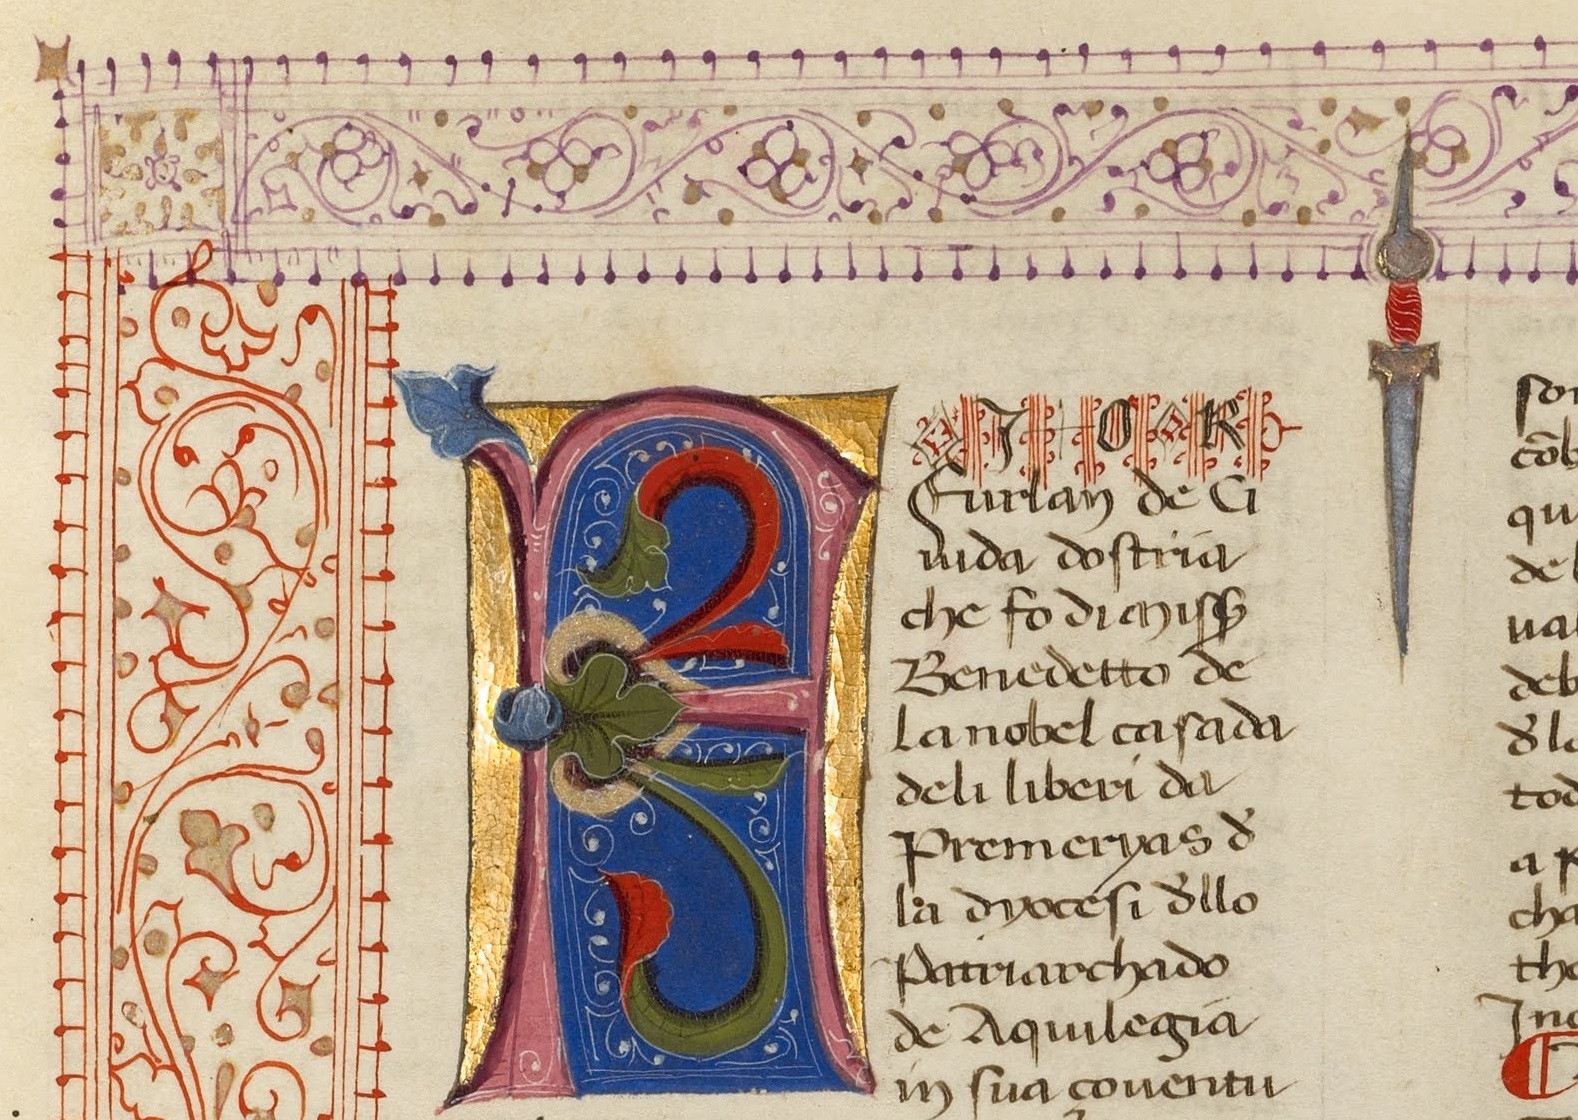 FIOR
Furlan de Ci
uida dostria
che fo di miss
Benedetto de
la nobel casada
deli liberi da
Premeryas d
la dyocesi dllo
Patriarchado
de Aquilegia
in sua couentu